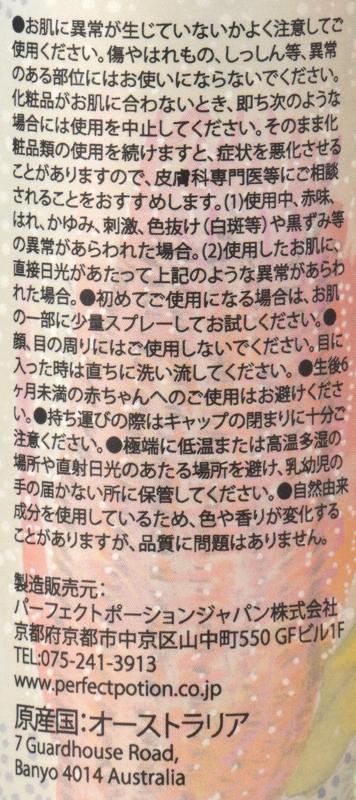 ●お肌に異常が生じていないかよく注意してご
使用ください。傷やはれもの、しっしん等、異常
のある部位にはお使いにならないでください。
化粧品がお肌に合わないとき、即ち次のような
場合には使用を中止してください。そのまま化
粧品類の使用を続けますと、症状を悪化させる
ことがありますので、皮膚科専門医等にご相談
されることをおすすめします。(1)使用中、赤味、
はれ、かゆみ、刺激、色抜け(白斑等)や黒ずみ等
の異常があらわれた場合。(2)使用したお肌に、
直接日光があたって上記のような異常があらわ
れた場合。●初めてご使用になる場合は、お肌
の一部に少量スプレーしてお試しください。●
顔、目の周りにはご使用しないでください。目に
入った時は直ちに洗い流してください。●生後6
ヶ月未満の赤ちゃんへのご使用はお避けくださ
い。●持ち運びの際はキャップの閉まりに十分ご
注意ください。●極端に低温または高温多湿の
場所や直射日光のあたる場所を避け、乳幼児の
手の届かない所に保管してください。●自然由来
成分を使用しているため、色や香りが変化する
ことがありますが、品質に問題はありません。
製造販売元:
パーフェクトポーションジャパン株式会社
京都府京都市中京区山中町550 GFビル1F
TEL:075-241-3913
www.perfectpotion.co.jp
原産国:オーストラリア
7 Guardhouse Road,
Banyo 4014 Australia